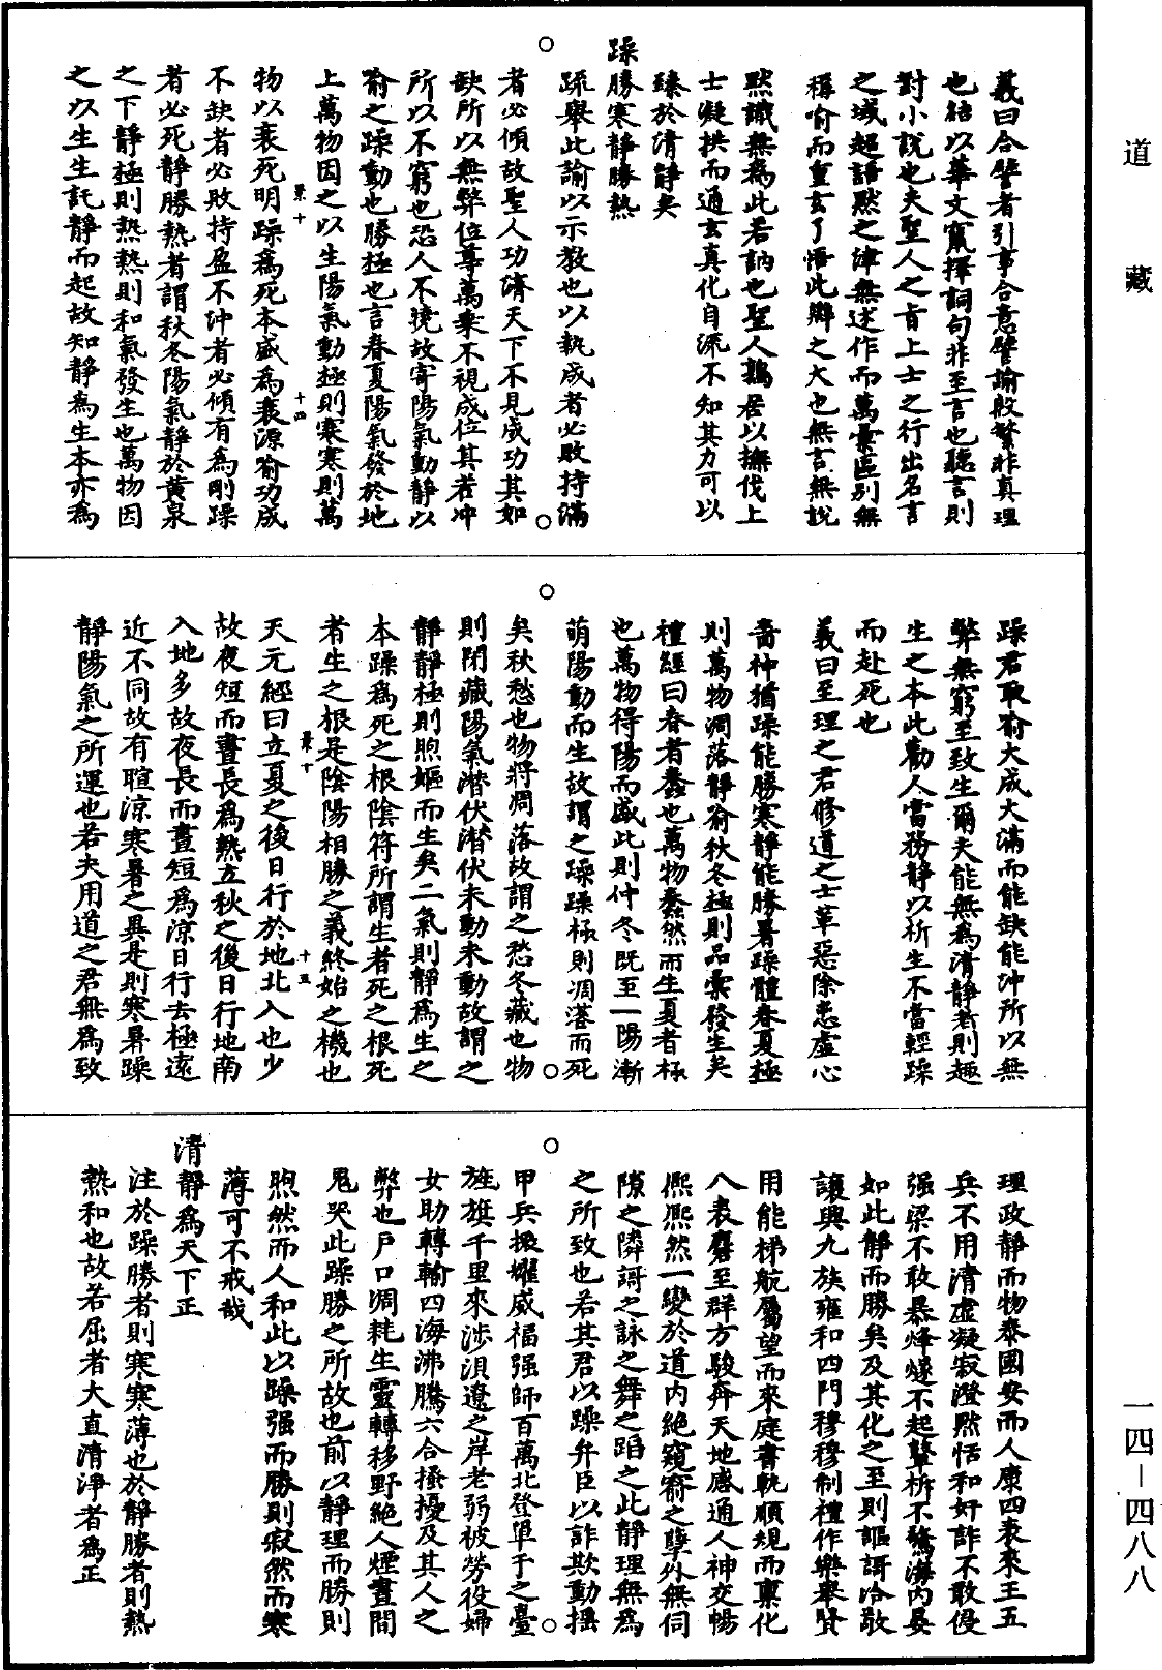 道藏
義曰合譬者引事合意譬諭般繁非真理
也結以華文竄擇詞句非至言也聽言則
對小說也夫聖人之旨上士之行出名言
之域超語默之津無述作而萬彙區別無
稱喻而重玄了悟此辯之大也無言無說
默識無為此若訥也聖人鶉居以撫伐上
士凝拱而通玄真化自流不知其力可以
臻於清靜矣
躁勝寒靜勝熱
疏舉此諭以示教也以執成者必敗持滿
者必傾故聖人功濟天下不見成功其如
缺所以無弊位尊萬乘不視成位其若沖
所以不窮也恐人不曉故寄陽氣動靜以
喻之躁動也勝極也言春夏陽氣發於地
上萬物因之以生陽氣動極則寒寒則萬
物以衰死明躁為死本盛為衰源喻功成
不缺者必敗持盈不沖者必傾有為剛躁
者必死靜勝熱者謂秋冬陽氣靜於黃泉
之下靜極則熱熱則和氣發生也萬物因
之以生生託靜而起故知靜為生本亦為
景十
十四
躁君取喻大成大滿而能缺能沖所以無
弊無窮至致生爾夫能無為清靜者則趣
生之本此勸人當務靜以祈生不當輕躁
而赴死也
義曰至理之君修道之士革惡除恚虛心
嗇神猶躁能勝寒靜能勝暑躁體春夏極
則萬物凋落靜喻秋冬極則品彙發生矣
禮經曰春者蠢也萬物蠢然而生夏者極
也萬物得陽而盛此則仲冬既至一陽漸
萌陽動而生故謂之躁躁極則凋落而死
矣秋愁也物將凋落故謂之愁冬藏也物
則閉藏陽氣潛伏潛伏未動未動故謂之
靜靜極則煦嫗而生矣二氣則靜為生之
本躁為死之根陰符所謂生者死之根死
者生之根是陰陽相勝之義終始之機也
天元經曰立夏之後日行於地北入也少
故夜短而晝長為熱立秋之後日行地南
入地多故夜長而晝短為涼日行去極遠
近不同故有暄涼寒暑之異是則寒暑躁
靜陽氣之所運也若夫用道之君無為致
景十
十五
理政靜而物泰國安而人康四表來王五
兵不用清虛凝寂澄默恬和奸詐不敢侵
强梁不敢暴烽燧不起鼙柝不驚海內晏
如此靜而勝矣及其化之至則謳謌洽敬
讓興九族雍和四門穆穆制禮作樂舉賢
用能梯航屬望而來庭書軌順規而稟化
八表麕至群方駿奔天地感通人神交暢
熙熙然一變於道內絕窺窬之孽外無伺
隙之隣謌之詠之舞之蹈之此靜理無為
之所致也若其君以躁弁臣以詐欺動搖
甲兵振燿威福强師百萬北登單于之臺
旌旗千里來涉浿遼之岸老弱被勞役婦
女助轉輸四海沸騰六合搔擾及其人之
弊也戶口凋耗生靈轉移野絕人煙晝間
鬼哭此躁勝之所故也前以靜理而勝則
煦然而人和此以躁强而勝則寂然而寒
薄可不戒哉
清靜為天下正
注於躁勝者則寒寒薄也於靜勝者則熱
熱和也故若屈者大直清淨者為正
一四—四八八